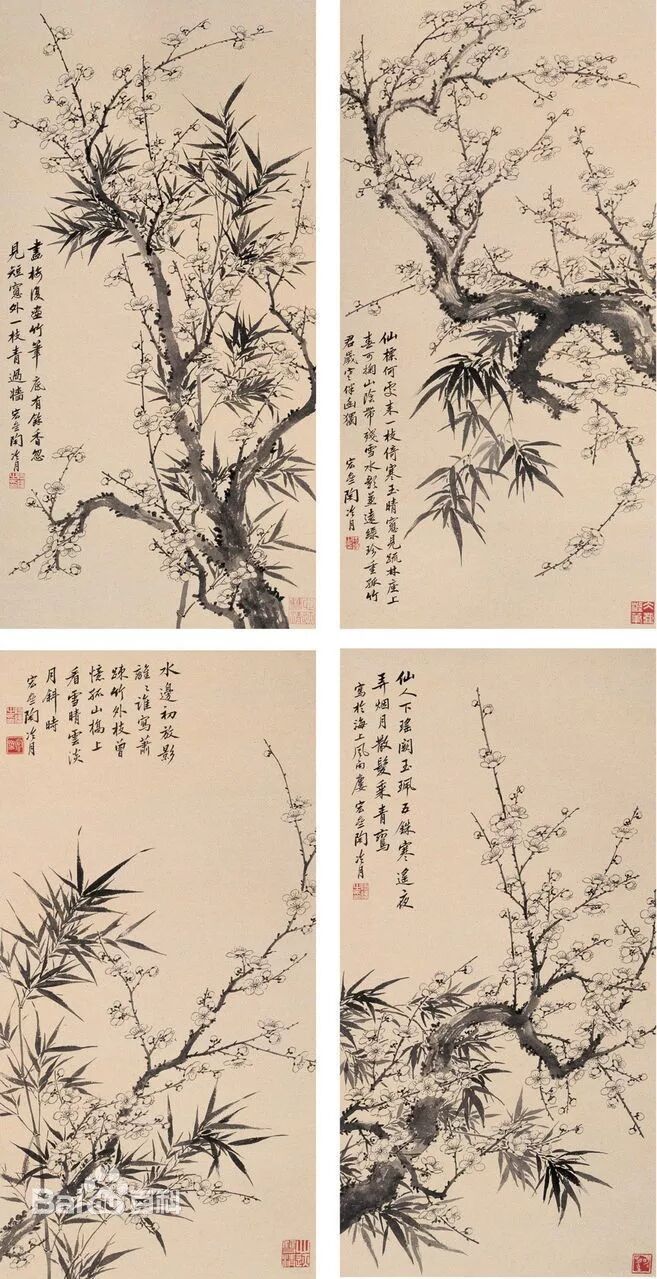 畫梅復畫竹筆底有餘香忽
見短窗外一枝青過墻 宏亝陶冷月
仙標何處來一枝倚寒玉晴窗見疏林座上
春可掬山陰帶殘雪水影並遠綠珍重孤竹
君歲寒伴幽獨 宏亝陶冷月
水邊初放影
離〻誰寫蕭
疎竹外枝曾
憶孤山橋上
看雪晴雲淡
月斜時
宏亝陶冷月
仙人下瑤闕玉珮五銖寒遙夜
弄烟月散髮乘青鸞
寫於海上風雨廔 宏亝陶冷月
Bai百科